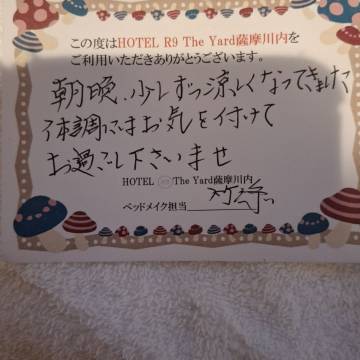 この度はHOTEL R9 The Yard薩摩川内を
ご利用いただきありがとうございます。
朝晩、少しずつ涼しくなってきましたので
体調にはお気を付けて
お過ごし下さいませ
HOTEL R9 The Yard薩摩川内
ベッドメイク担当